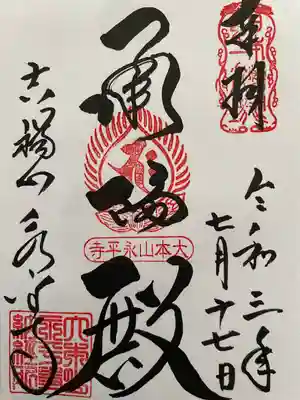 奉拝
令和三年
七月十七日
承陽殿
大本山永平寺
吉祥山永平寺